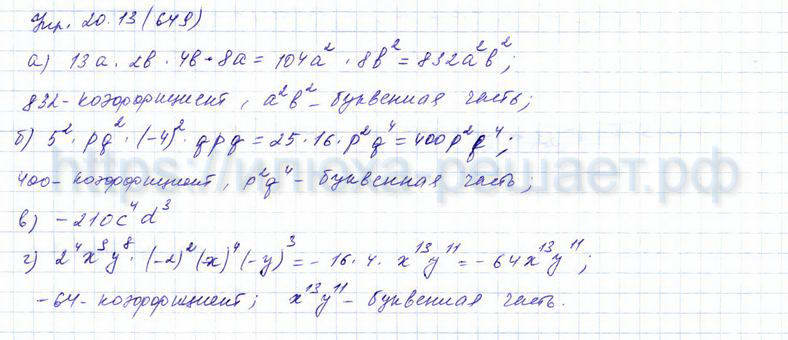 Упр. 20.13 (649)
а) 13a · 2b · 4b · 8a = 104a² · 8b² = 832a²b²;
832 - коэффициент, a²b² - буквенная часть;
б) 5² · pq² · (-4)² · qpq = 25 · 16 · p²q⁴ = 400p²q⁴;
https://илюха-решает.рф
400 - коэффициент, p²q⁴ - буквенная часть;
в) -210c⁴d³
г) 2⁴x⁹y⁸ · (-2)²(-x)⁴(-y)³ = -16 · 4 · x¹³y¹¹ = -64x¹³y¹¹;
-64 - коэффициент; x¹³y¹¹ - буквенная часть.